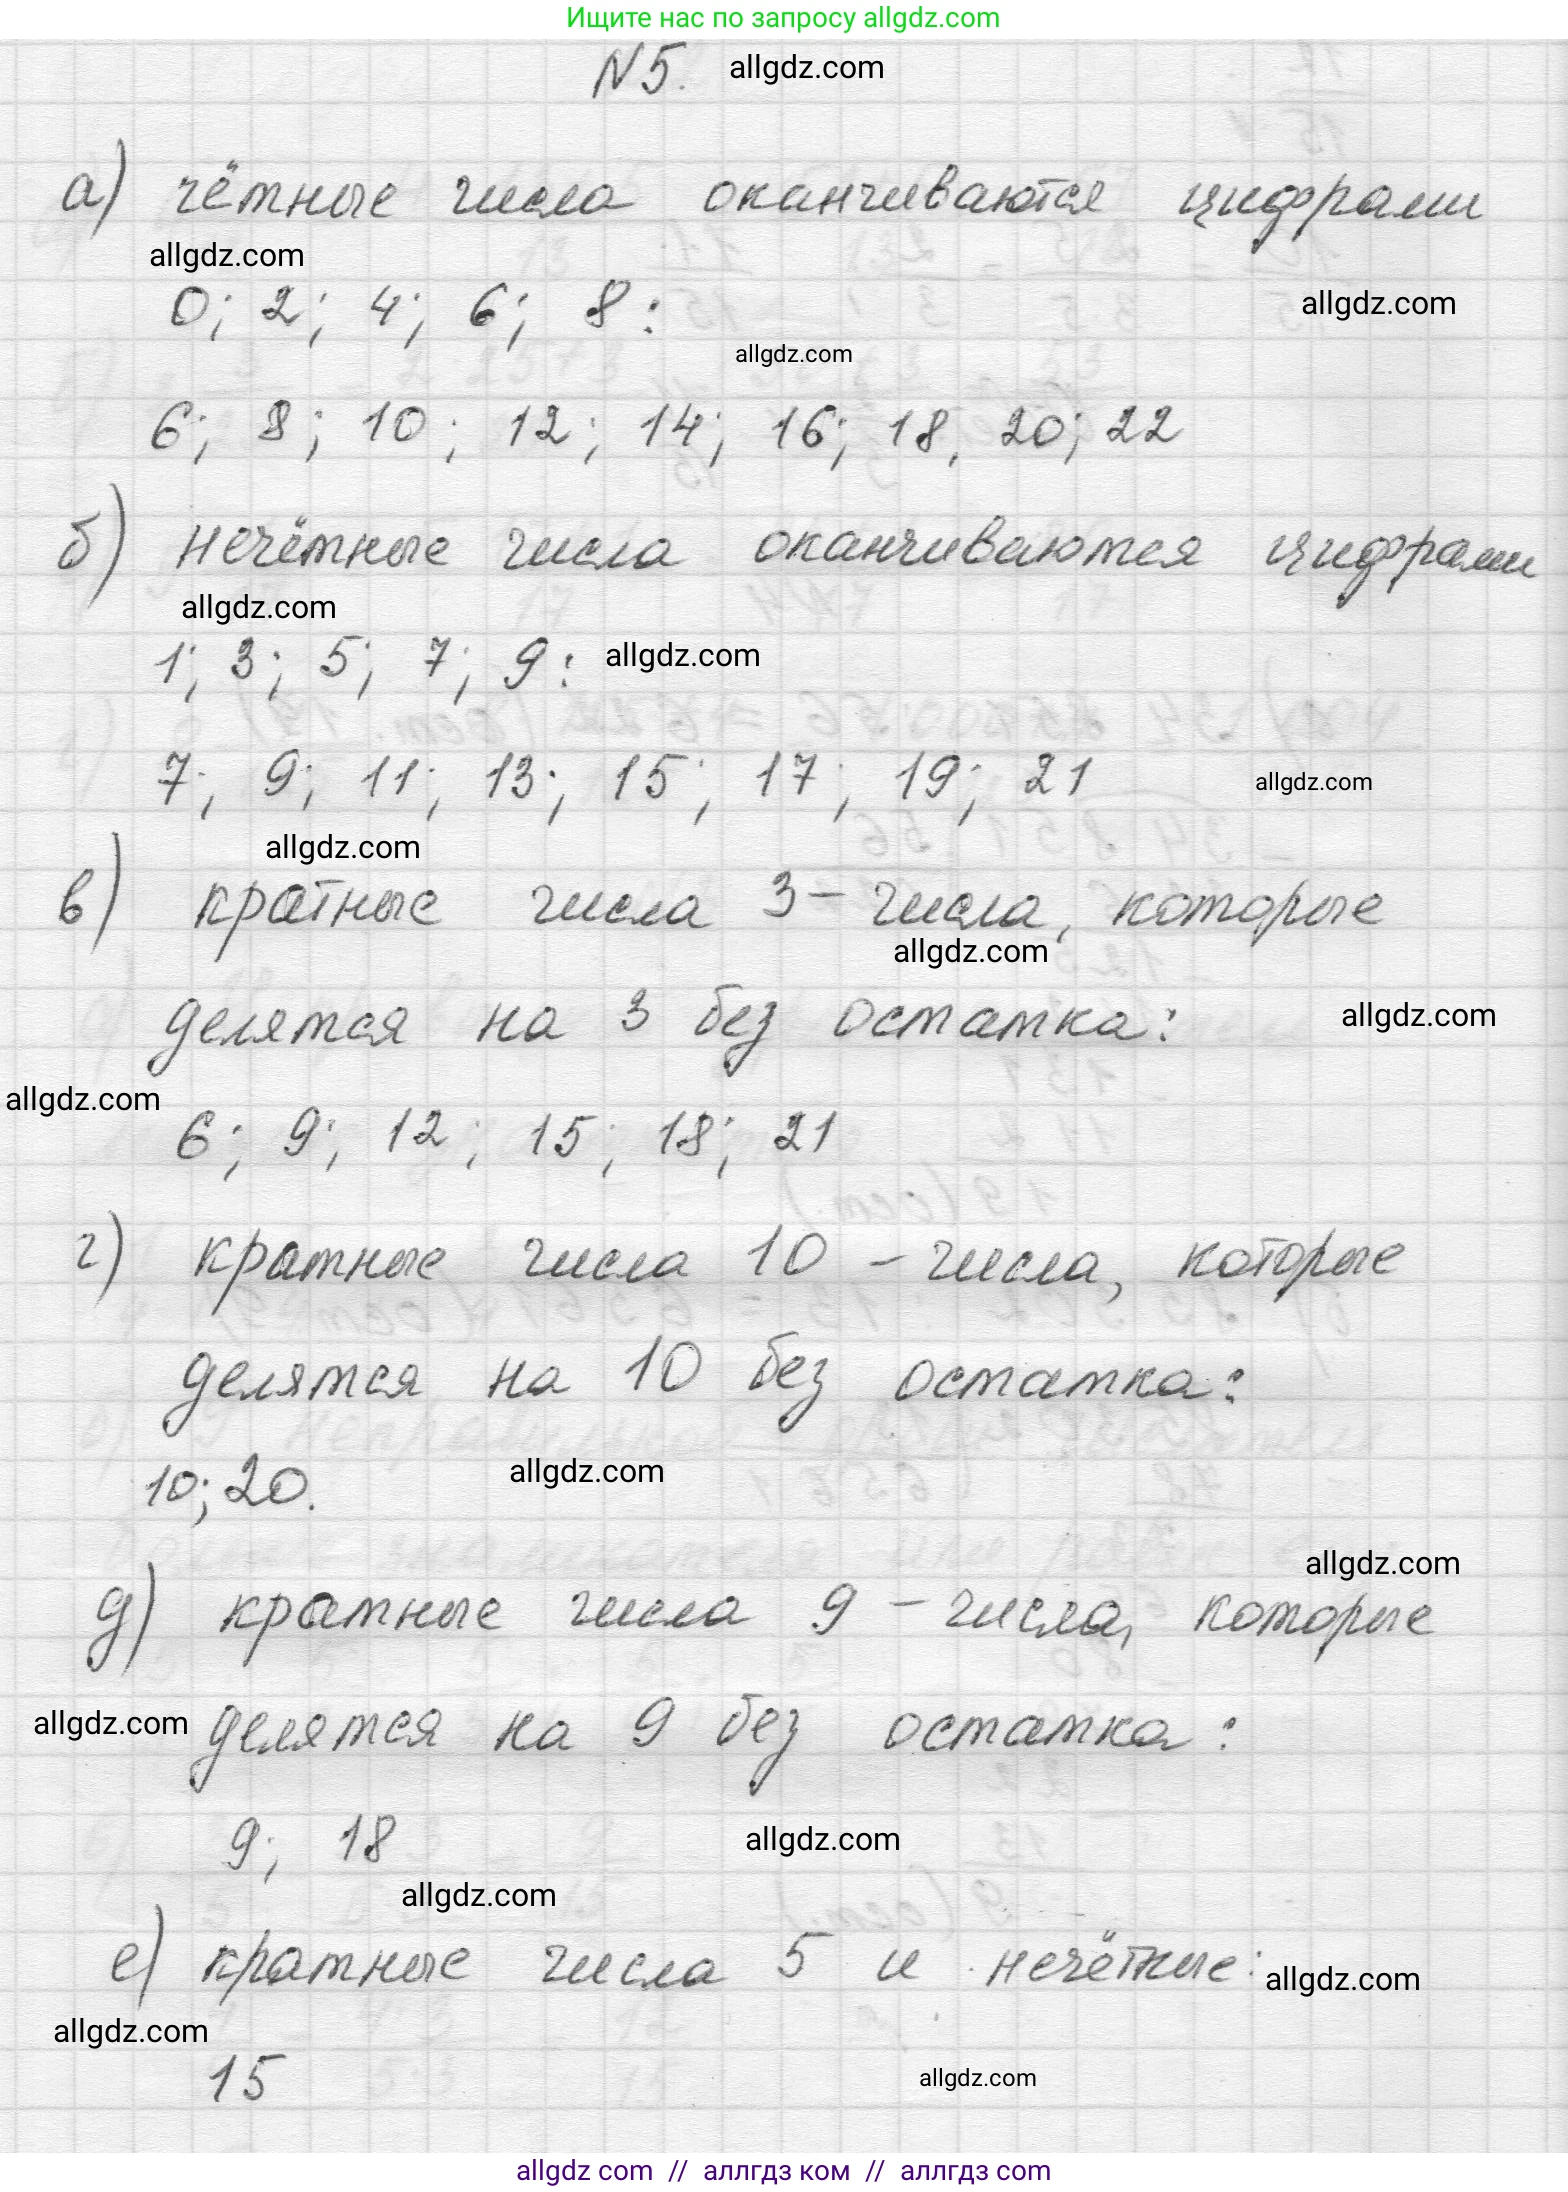 Ищите нас по запросу allgdz.com
N5. allgdz.com
а) чётные числа оканчиваются цифрами
allgdz.com
0; 2; 4; 6; 8:
allgdz.com
allgdz.com
6; 8; 10; 12; 14; 16; 18, 20; 22
б) нечётные числа оканчиваются цифрами
allgdz.com
1; 3; 5; 7; 9: allgdz.com
7; 9; 11; 13; 15; 17; 19; 21 allgdz.com
allgdz.com
в) кратные числа 3 - числа, которые
allgdz.com
делятся на 3 без остатка: allgdz.com
allgdz.com
6; 9; 12; 15; 18; 21
г) кратные числа 10 - числа, которые
делятся на 10 без остатка:
10; 20. allgdz.com
allgdz.com
д) кратные числа 9 - числа, которые
allgdz.com делятся на 9 без остатка:
9; 18 allgdz.com
allgdz.com
е) кратные числа 5 и нечётные: allgdz.com
allgdz.com
15 allgdz.com
allgdz com // аллгдз ком // аллгдз com